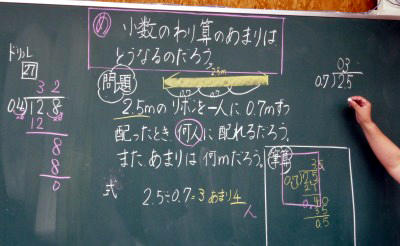 め 小数のわり算のあまりは
どうなるのだろう。
ドリル
27
32
0.4)12.8
12
8
8
0
問題
2.5m
0.7 0.7
2.5mのリボンを一人に0.7mずつ
配ったとき何人に配れるだろう。
また、あまりは何mだろう。
式 2.5÷0.7=3あまり4
人
03
0.7)2.5
筆算